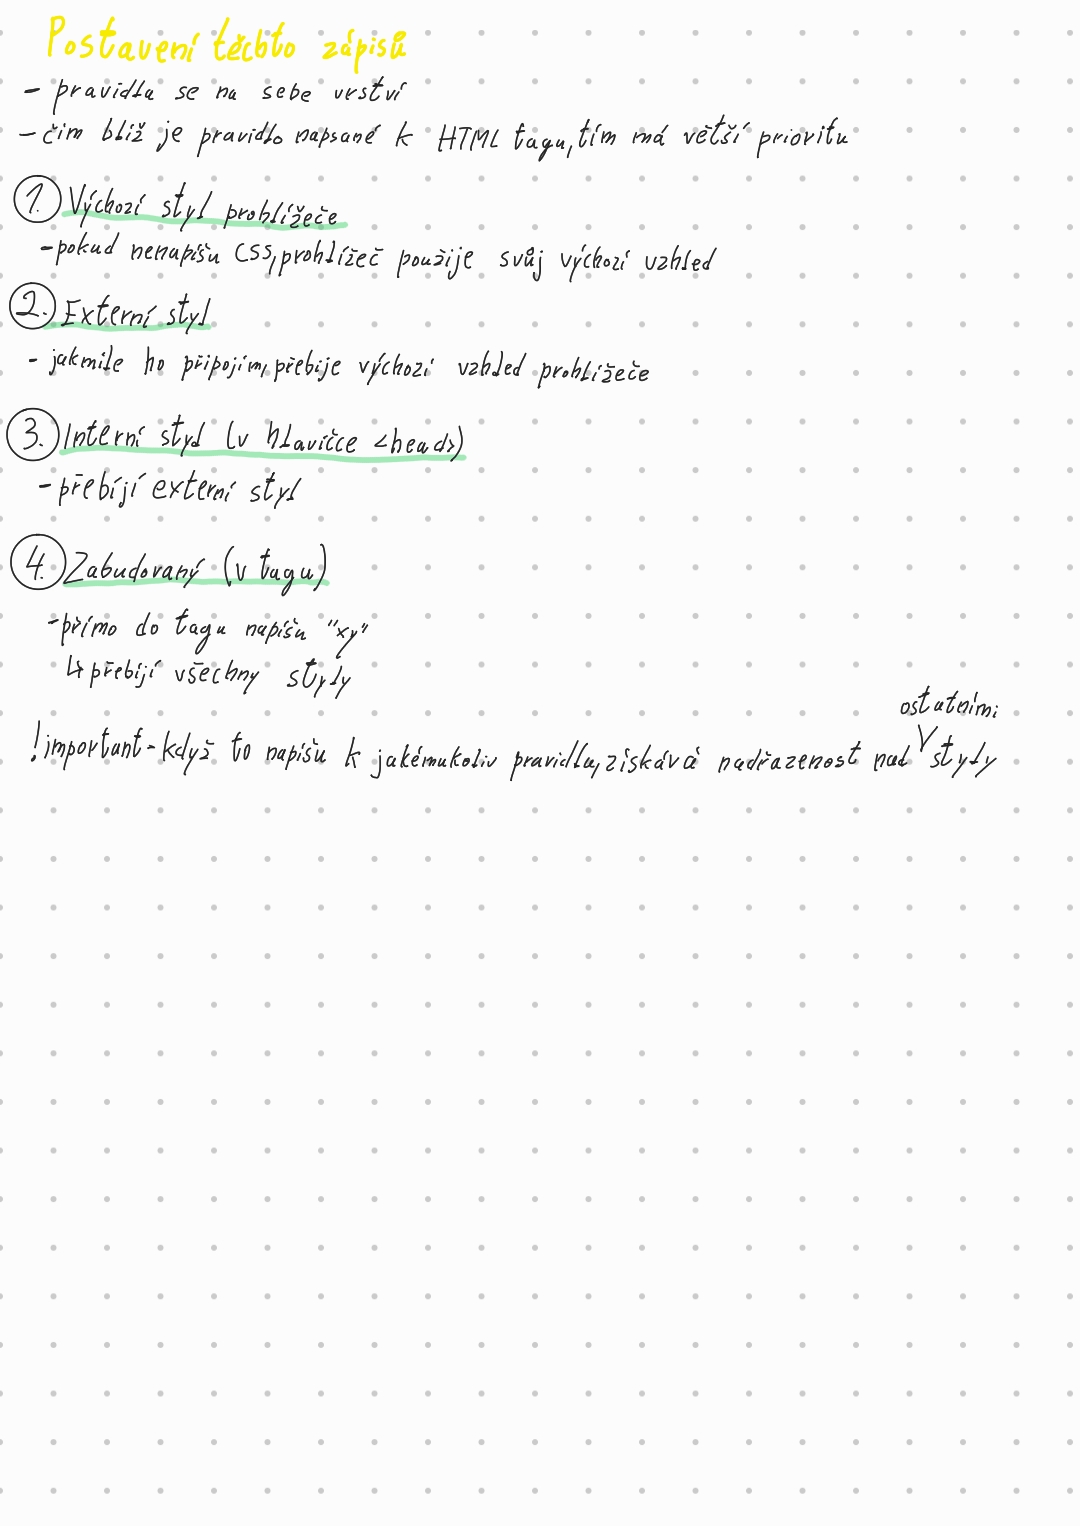 Postavení těchto zápisů
- pravidla se na sebe vrství
- čím blíž je pravidlo napsané k HTML tagu, tím má větší prioritu
1. Výchozí styl prohlížeče
- pokud nenapíšu CSS, prohlížeč použije svůj výchozí vzhled
2. Externí styl
- jakmile ho připojím, přebije výchozí vzhled prohlížeče
3. Interní styl (v hlavičce <head>)
- přebíjí externí styl
4. Zabudovaný (v tagu)
- přímo do tagu napíšu "xy"
↳ přebíjí všechny styly
!important - když to napíšu k jakémukoliv pravidlu, získává nadřazenost nad ostatními styly